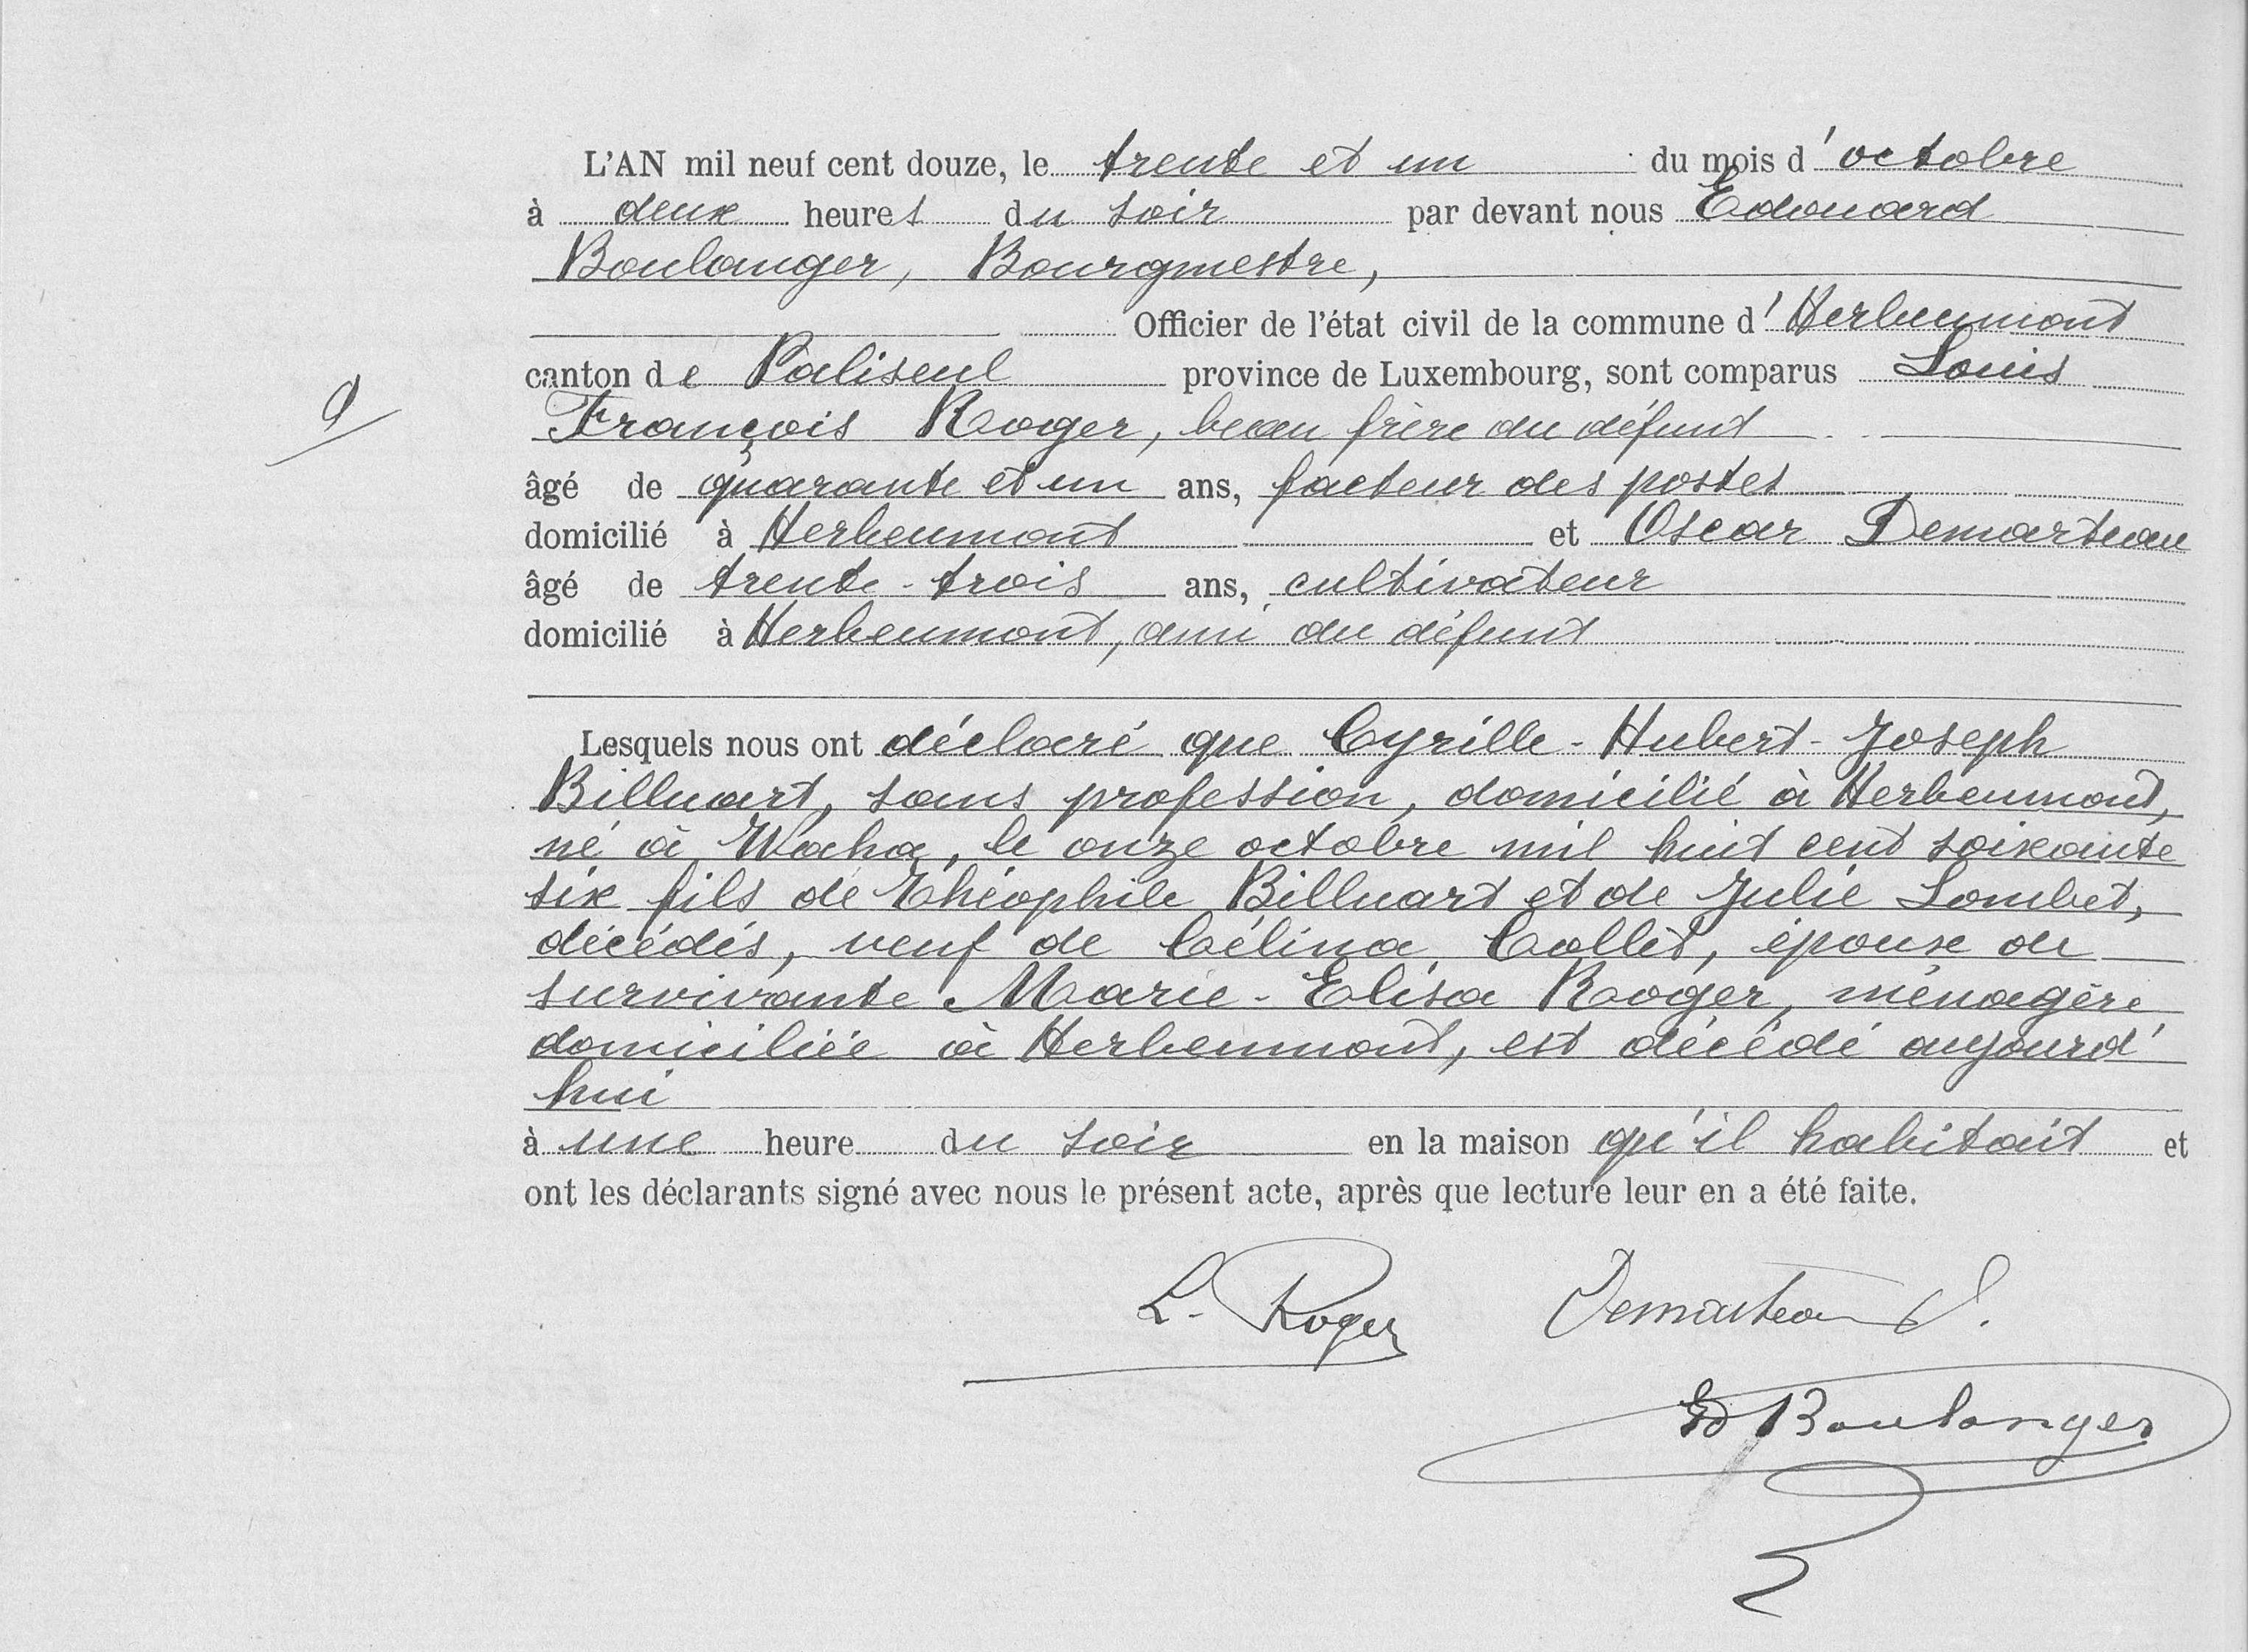 L'AN mil neuf cent douze, le trente et un du mois d'octobre
à deux heures du soir par devant nous Edouard
Boulanger, Bourgmestre,
Officier de l'état civil de la commune d'Herbeumont
canton de Paliseul province de Luxembourg, sont comparus Louis
François Roger, beau frère du défunt
9
âgé de quarante et un ans, facteur des postes
domicilié à Herbeumont et Oscar Demarteau
âgé de trente-trois ans, cultivateur
domicilié à Herbeumont, ami du défunt
Lesquels nous ont déclaré que Cyrille-Hubert-Joseph
Billuart, sans profession, domicilié à Herbeumont,
né à Waha, le onze octobre mil huit cent soixante
six fils de Théophile Billuart et de Julie Lombet,
décédés, veuf de Célina Collet, époux de
survivante Marie-Elisa Roger, ménagère
domiciliée à Herbeumont, est décédé aujourd'
hui
à une heure du soir en la maison qu'il habitait et
ont les déclarants signé avec nous le présent acte, après que lecture leur en a été faite.
L. Roger Demarteau O.
Ed Boulanger